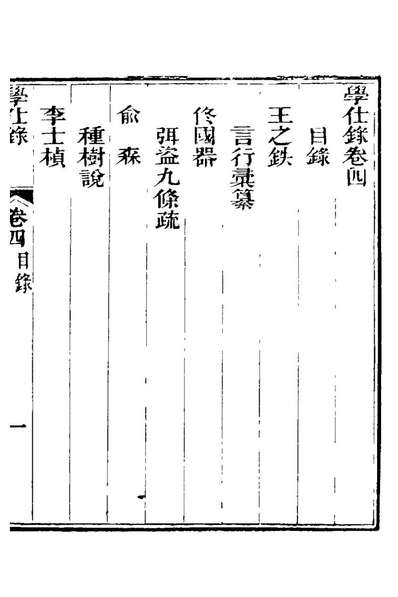 學仕錄卷四
目錄
王之鈇
言行彙纂
佟國器
弭盜九條疏
俞森
種樹說
李士楨
學仕錄
卷四目錄
一